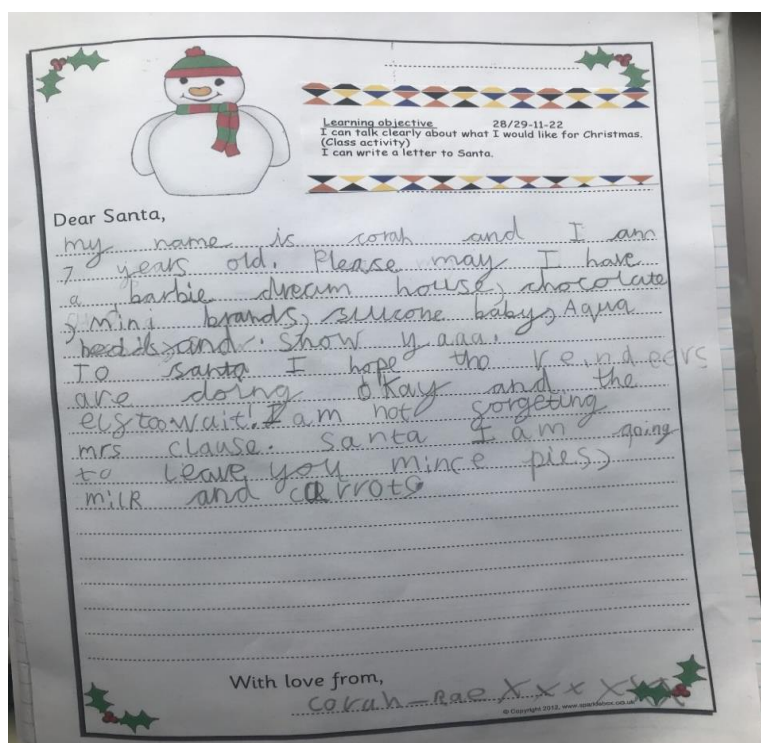 Learning objective 28/29-11-22
I can talk clearly about what I would like for Christmas.
(Class activity)
I can write a letter to Santa.
Dear Santa,
my name is corah and I am
7 years old. Please may I have
a barbie dream house, chocolate
, mini brands, silicone baby, Aqua
and. Show yaaa.
To santa I hope the reindeers
are doing okay and the
wait! I am not gorgeting
mrs clause. Santa I am going
to leave you mince pies,
milk and carrots
With love from,
corah-Rae X X x X X X
© Copyright 2012, www.sparklebox.co.uk